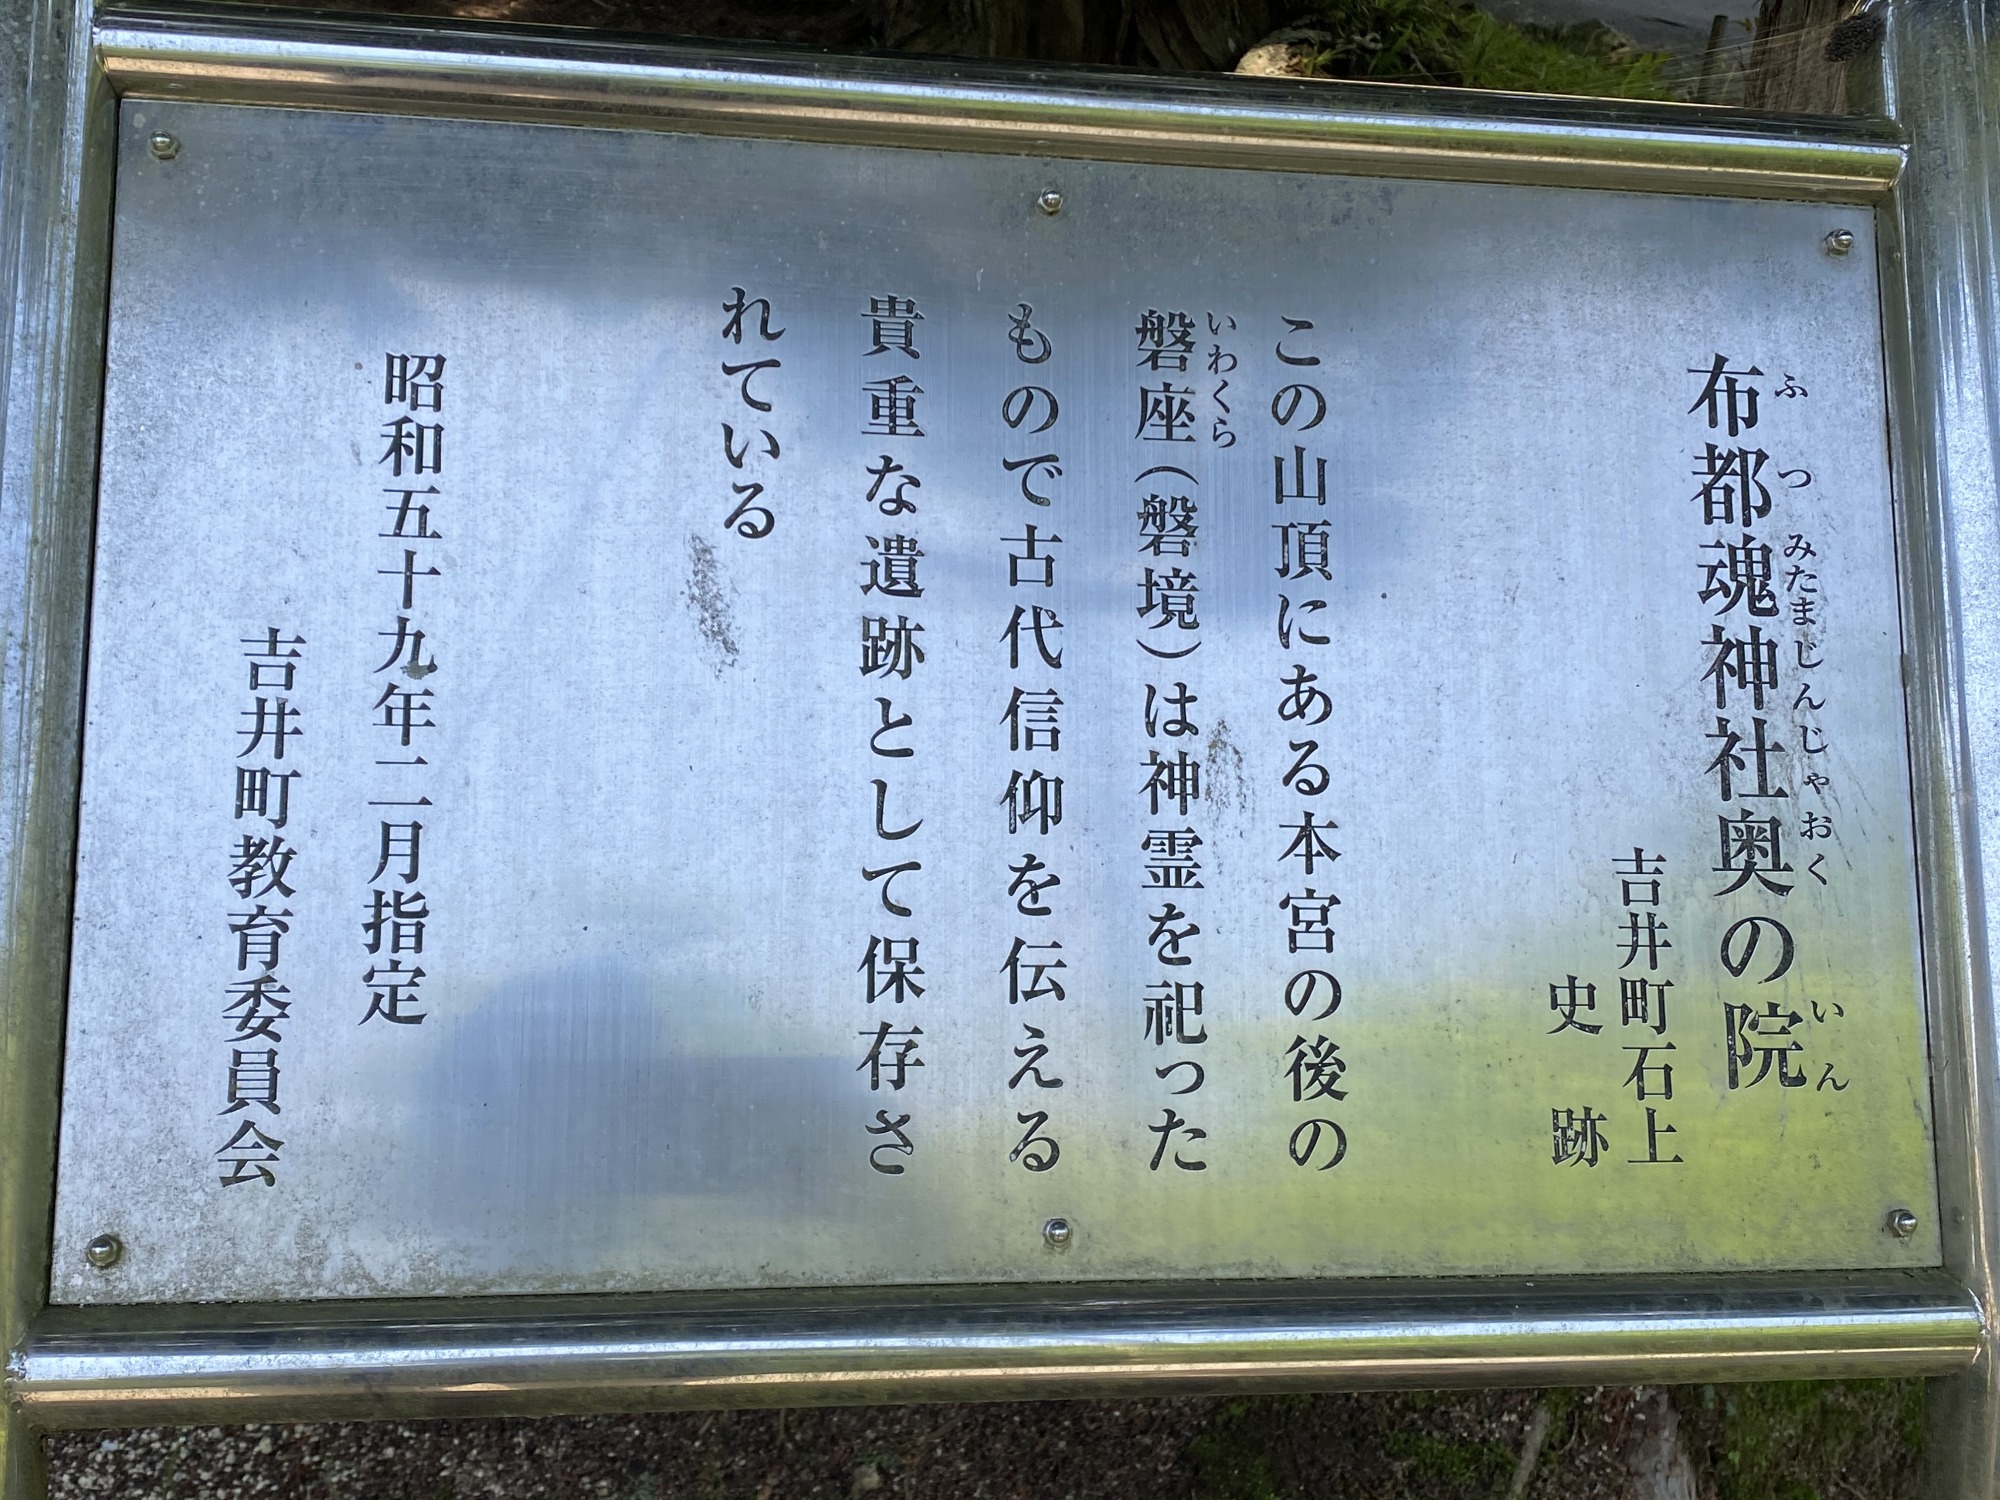 布都魂神社奥の院
ふつみたまじんじゃおくいん
吉井町石上
史跡
この山頂にある本宮の後の
磐座（磐境）は神霊を祀った
いわくら
もので古代信仰を伝える
貴重な遺跡として保存さ
れている
昭和五十九年二月指定
吉井町教育委員会